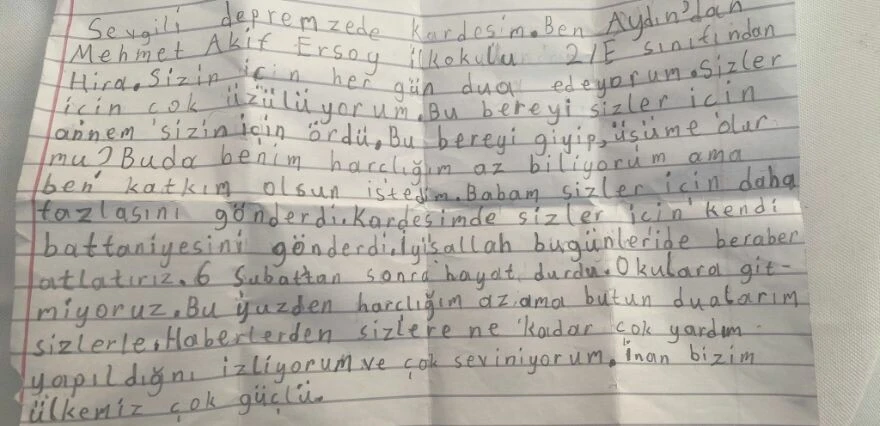 Sevgili depremzede kardesim. Ben Aydın'dan
Mehmet Akif Ersoy ilkokulu 2/E sınıfından
Hira. Sizin için her gün dua edeyorum. Sizler
icin cok üzülüyorum. Bu bereyi sizler icin
annem sizin için ördü. Bu bereyi giyip, üsüme olur
mu? Buda benim harclığım az biliyorum ama
ben katkım olsun istedim. Babam sizler icin daha
fazlasını gönderdi. Kardesimde sizler icin kendi
battaniyesini gönderdi. İyisallah bugünleride beraber
atlatırız. 6 Subattan sonra hayat durdu. Okulara git-
miyoruz. Bu yuzden harclığım az ama butun dualarım
sizlerle. Haberlerden sizlere ne kadar cok yardım
yapıldığnı izliyorum ve çok seviniyorum. İnan bizim
ülkemiz çok güçlü.